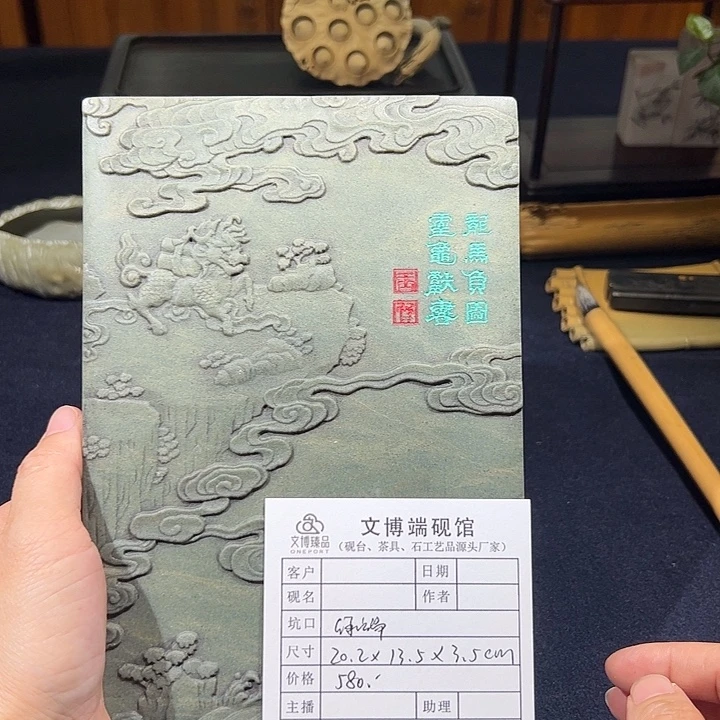 龍馬負圖
靈龜獻書
吉祥
文博臻品
ONEPORT
文博端砚馆
（砚台、茶具、石工艺品源头厂家）
客户 日期
砚名 作者
坑口 绿端
尺寸 20.2x13.5x3.5cm
价格 580.-
主播 助理